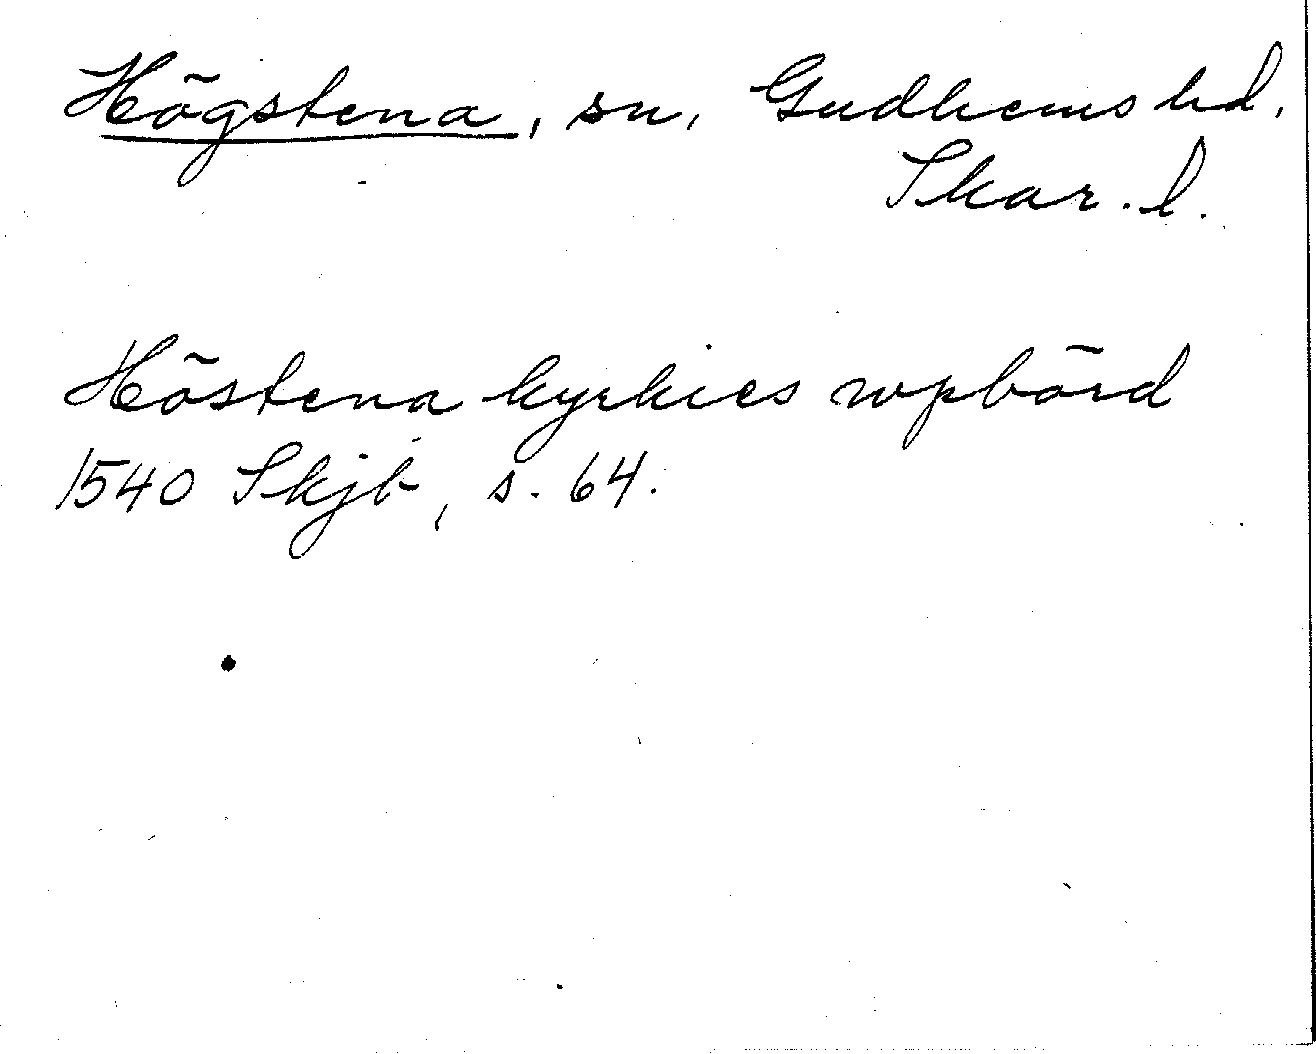 Högstena, sn, Gudhems hd,
Skar. l.
Höstena kyrkies wpbörd
1540 Skjb, s. 64.